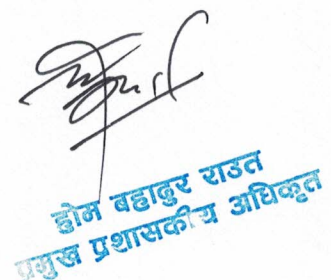 होम बहादुर राउत
प्रमुख प्रशासकीय अधिकृत